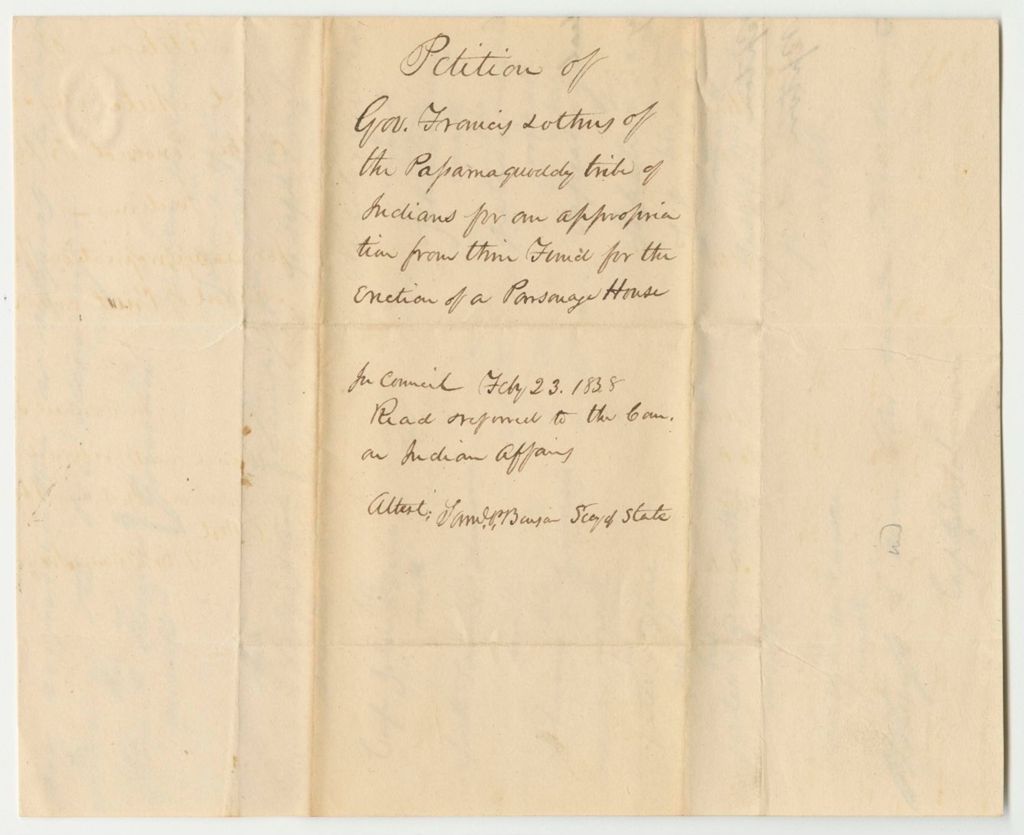 Petition of
Gov. Francis & others of
the Passamaquoddy tribe of
Indians for an appropria
tion from thier Fund for the
Erection of a Parsonage House
In Council Feby 23. 1838
Read & referred to the Com.
on Indian Affairs
Attest: Saml. P. Benson Secy of State